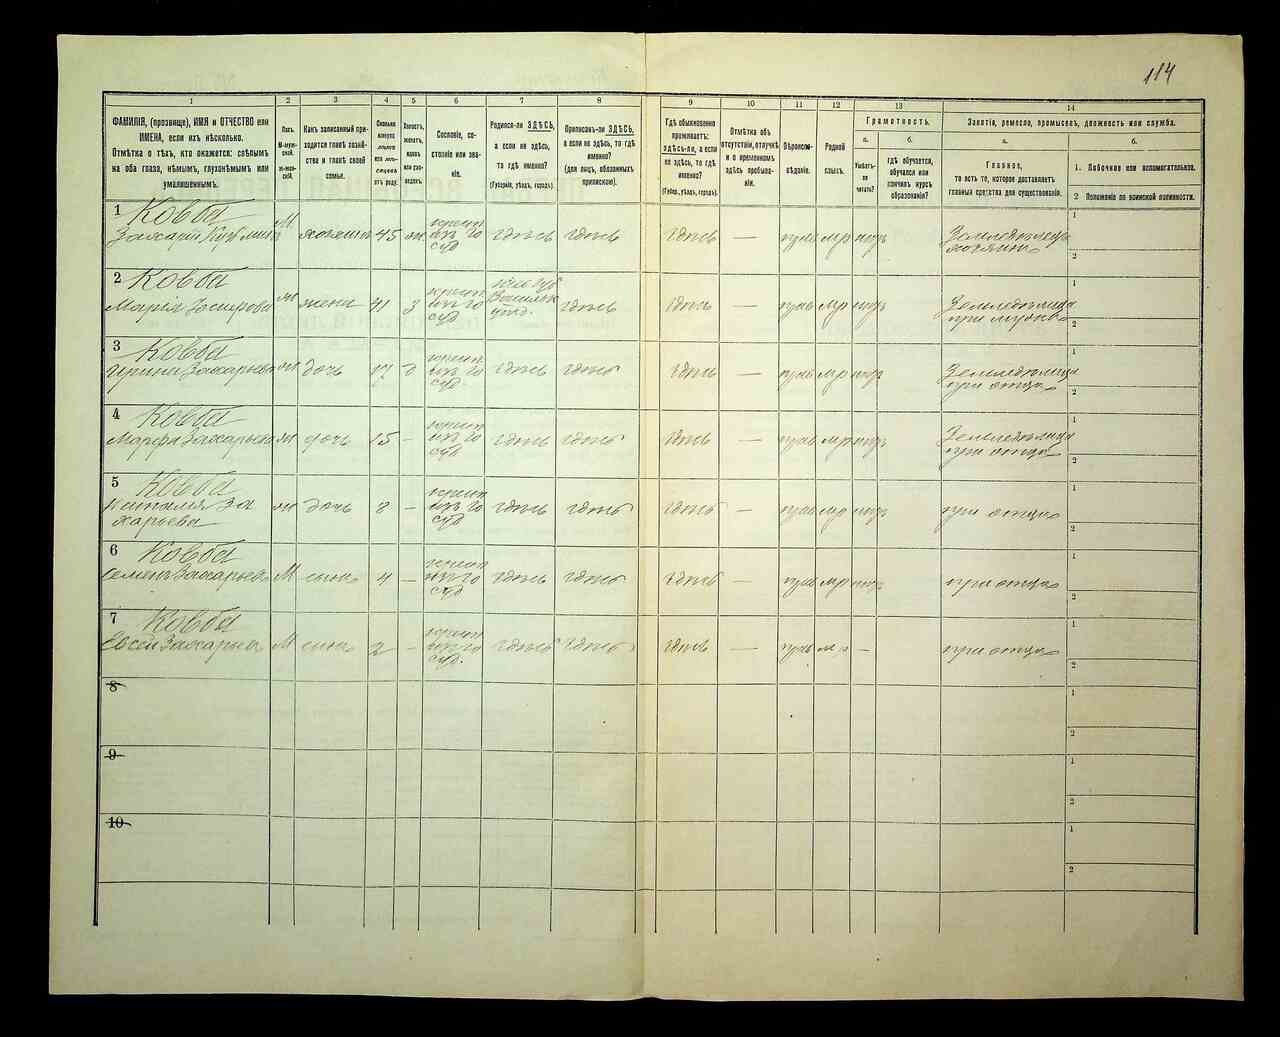 114
1 2 3 4 5 6 7 8 9 10 11 12 13 14
ФАМИЛІЯ, (прозвище), ИМЯ и ОТЧЕСТВО или
ИМЕНА, если ихъ нѣсколько.
Отмѣтка о тѣхъ, кто окажется: слѣпымъ
на оба глаза, нѣмымъ, глухонѣмымъ или
умалишеннымъ.
Полъ.
М-муж-
ской.
Ж-жен-
скій.
Какъ записанный при-
ходится главѣ хозяй-
ства и главѣ своей
семьи.
Сколько
минуло
лѣтъ
или мѣ-
сяцевъ
отъ роду.
Холостъ,
женатъ,
вдовъ
или раз-
веденъ.
Сословіе, со-
стояніе или зва-
ніе.
Родился-ли ЗДѢСЬ,
а если не здѣсь,
то гдѣ именно?
(Губернія, уѣздъ, городъ).
Приписанъ-ли ЗДѢСЬ,
а если не здѣсь, то гдѣ
именно?
(для лицъ, обязанныхъ
припискою).
Гдѣ обыкновенно
проживаетъ:
ЗДѢСЬ-ли, а если
не здѣсь, то гдѣ
именно?
(Губер., уѣздъ, городъ).
Отмѣтка объ
отсутствіи, отлучкѣ
и о временномъ
здѣсь пребыва-
ніи.
Вѣроиспо-
вѣданіе.
Родной
языкъ.
Грамотность.
а. б.
Умѣетъ-
ли
читать?
Гдѣ обучается,
обучался или
кончилъ курсъ
образованія?
Занятіе, ремесло, промыселъ, должность или служба.
а. б.
Главное,
то есть то, которое доставляетъ
главныя средства для существованія.
1. Побочное или вспомогательное.
2 Положеніе по воинской повинности.
1 Ковба
М хозяинъ 45 здѣсь здѣсь здѣсь — прав мр
Земледѣлецъ
хозяинъ
1
2
2 Ковба
Марія ж жена 41 з здѣсь здѣсь — прав мр
Земледѣлица
при мужѣ
1
2
3 Ковба
Ирина Захарьева ж дочь 17 здѣсь здѣсь здѣсь — прав мр
Земледѣлица
при отцѣ
1
2
4 Ковба
Марфа Захарьева ж дочь 15 — здѣсь здѣсь здѣсь — прав мр
Земледѣлица
при отцѣ
1
2
5 Ковба
Наталія За
харьева ж дочь 8 — здѣсь здѣсь здѣсь — прав мр при отцѣ
1
2
6 Ковба
Семенъ Захарьевъ М сынъ 4 — здѣсь здѣсь здѣсь — прав мр при отцѣ
1
2
7 Ковба
Евсей Захарьевъ М сынъ 2 — здѣсь здѣсь здѣсь — прав мр — при отцѣ
1
2
8
1
2
9
1
2
10
1
2